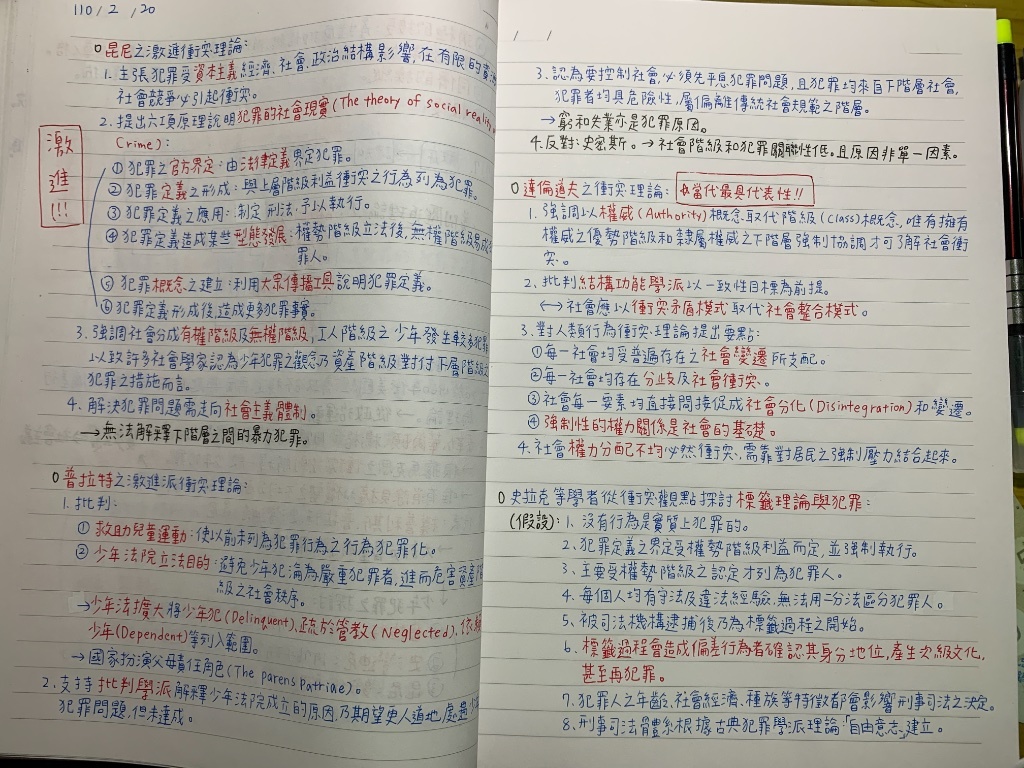 110 / 2 / 20
○昆尼之激進衝突理論:
1. 主張犯罪受資本主義經濟、社會、政治結構影響,在有限的資
社會競爭必引起衝突。
2. 提出六項原理說明犯罪的社會現實(The theory of social reality
Crime):
激進!!!
① 犯罪之官方界定:由法律定義界定犯罪。
② 犯罪定義之形成:與上層階級利益衝突之行為列為犯罪。
③ 犯罪定義之應用:制定刑法,予以執行。
④ 犯罪定義造成某些型態發展:權勢階級立法後,無權階級易成
罪人。
⑤ 犯罪概念之建立:利用大眾傳播工具說明犯罪定義。
⑥ 犯罪定義形成後,造成更多犯罪事實。
3. 強調社會分成有權階級及無權階級,工人階級之少年發生較多犯罪
以致許多社會學家認為少年犯罪之觀念乃資產階級對付下層階級之
犯罪之措施而言。
4. 解決犯罪問題需走向社會主義體制。
→無法解釋下階層之間的暴力犯罪。
○普拉特之激進派衝突理論:
1. 批判:
① 救助兒童運動:使以前未列為犯罪行為之行為犯罪化。
② 少年法院立法目的:避免少年犯淪為嚴重犯罪者,進而危害資產階
級之社會秩序。
→少年法擴大將少年犯(Delinquent)、疏於管教(Neglected)、依賴
少年(Dependent)等列入範圍。
→國家扮演父母責任角色(The parens Patriae)。
2. 支持批判學派解釋少年法院成立的原因,乃期望更人道地處遇少
犯罪問題,但未達成。
/ /
3. 認為要控制社會,必須先平息犯罪問題,且犯罪均來自下階層社會,
犯罪者均具危險性,屬偏離傳統社會規範之階層。
→窮和失業亦是犯罪原因。
4. 反對:史密斯。→社會階級和犯罪關聯性低。且原因非單一因素。
○達倫道夫之衝突理論: 當代最具代表性!!
1. 強調以權威(Authority)概念取代階級(Class)概念,唯有擁有
權威之優勢階級和隸屬權威之下階層強制協調才可了解社會衝
突。
2. 批判結構功能學派以一致性目標為前提。
←→社會應以衝突矛盾模式取代社會整合模式。
3. 對人類行為衝突理論提出要點:
①每一社會均受普遍存在之社會變遷所支配。
②每一社會均存在分歧及社會衝突。
③社會每一要素均直接間接促成社會分化(Disintegration)和變遷。
④強制性的權力關係是社會的基礎。
4. 社會權力分配不均必然衝突,需靠對居民之強制壓力結合起來。
○史拉克等學者從衝突觀點探討標籤理論與犯罪:
(假設):1. 沒有行為是實質上犯罪的。
2. 犯罪定義之界定受權勢階級利益而定,並強制執行。
3. 主要受權勢階級之認定才列為犯罪人。
4. 每個人均有守法及違法經驗,無法用二分法區分犯罪人。
5. 被司法機構逮捕後乃為標籤過程之開始。
6. 標籤過程會造成偏差行為者確認其身分地位,產生次級文化,
甚至再犯罪。
7. 犯罪人之年齡、社會經濟、種族等特徵都會影響刑事司法之決定。
8. 刑事司法體系根據古典犯罪學派理論:「自由意志」建立。